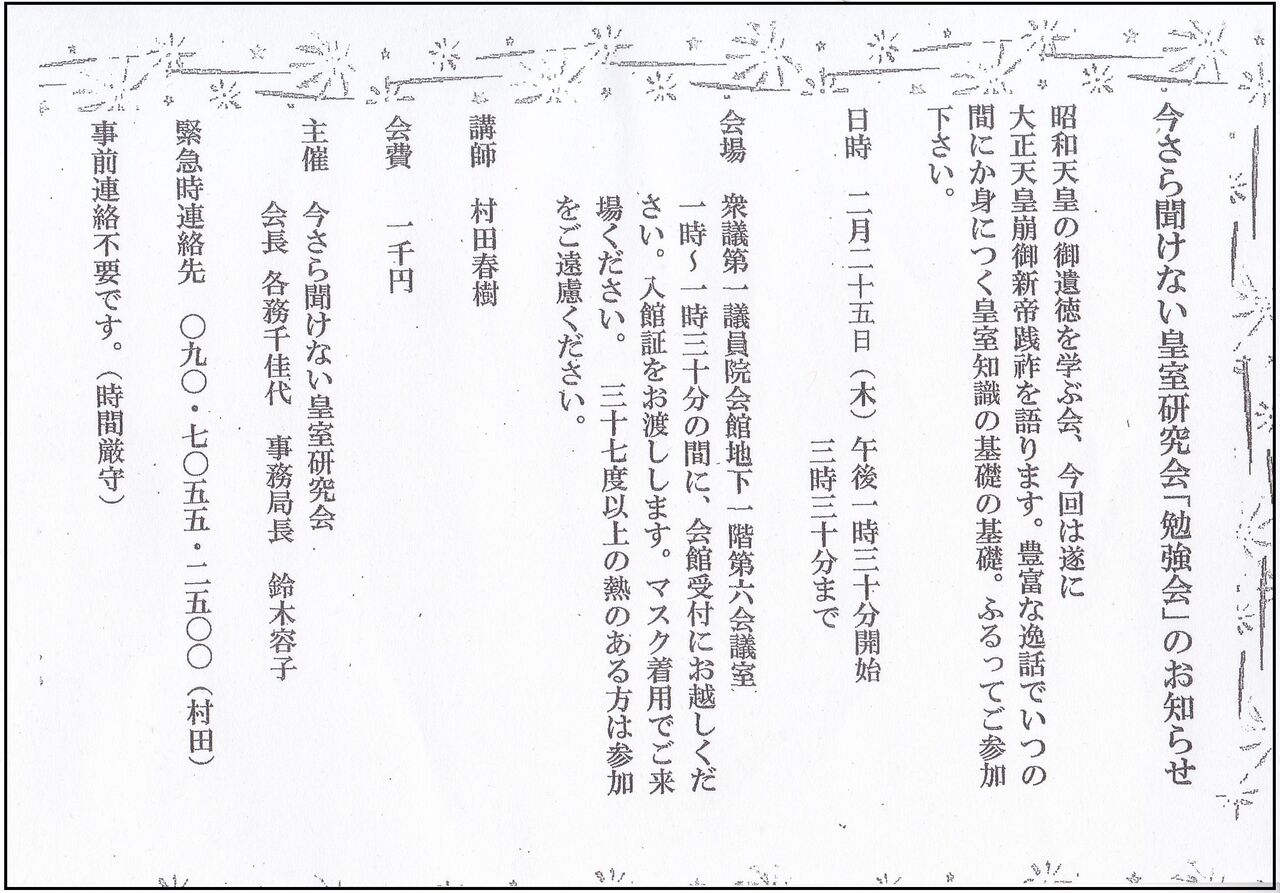 今さら聞けない皇室研究会「勉強会」のお知らせ
昭和天皇の御遺徳を学ぶ会、今回は遂に
大正天皇崩御新帝践祚を語ります。豊富な逸話でいつの
間にか身につく皇室知識の基礎の基礎。ふるってご参加
下さい。
日時　二月二十五日（木）午後一時三十分開始
三時三十分まで
会場　衆議第一議員院会館地下一階第六会議室
一時～一時三十分の間に、会館受付にお越しくだ
さい。入館証をお渡しします。マスク着用でご来
場ください。　三十七度以上の熱のある方は参加
をご遠慮ください。
講師　村田春樹
会費　一千円
主催　今さら聞けない皇室研究会
会長　各務千佳代　事務局長　鈴木容子
緊急時連絡先　〇九〇・七〇五五・二五〇〇（村田）
事前連絡不要です。（時間厳守）